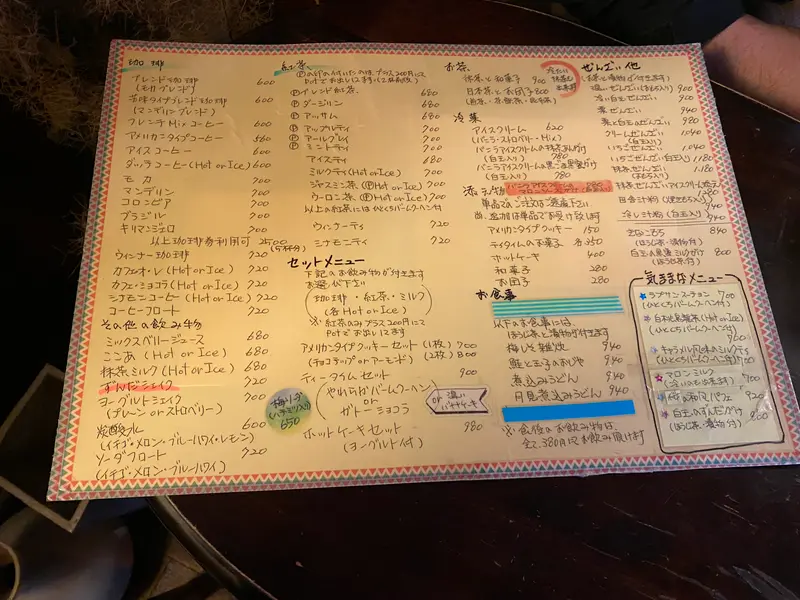 珈琲
ブレンド珈琲 600
(モカブレンド)
苦味タイプブレンド珈琲 600
(マンデリンブレンド)
フレンチMixコーヒー 600
アメリカンタイプコーヒー 560
アイスコーヒー 600
ダッチコーヒー(Hot or Ice) 600
モカ 700
マンデリン 700
コロンビア 700
ブラジル 700
キリマンジェロ 700
以上珈琲券利用可 2500
(5杯分)
ウィンナー珈琲 720
カフェオ・レ(Hot or Ice) 720
カフェ・ショコラ(Hot or Ice) 720
シナモンコーヒー(Hot or Ice) 720
コーヒーフロート 720
その他の飲み物
ミックスベリージュース 680
ここあ(Hot or Ice) 680
抹茶ミルク(Hot or Ice) 680
ずんだシェイク 720
ヨーグルトシェイク 700
(プレーン or ストロベリー)
炭酸水 600
(イチゴ・メロン・ブルーハワイ・レモン)
ソーダフロート 720
(イチゴ・メロン・ブルーハワイ)
紅茶
Ⓟの印の付いたのはプラス200円にて
Potでお出し
Ⓟブレンド紅茶 680
Ⓟダージリン 680
Ⓟアッサム 680
Ⓟアップルティ 700
Ⓟアールグレイ 700
Ⓟミントティ 700
アイスティ 680
ミルクティ(Hot or Ice) 700
ジャスミン茶(ⓅHot or Ice) 700
ウーロン茶(ⓅHot or Ice) 700
以上の紅茶にはひとくちバームクーヘン付
ウィンナーティ 720
シナモンティ 720
セットメニュー
下記のお飲み物が付きます
お選び下さい
(珈琲・紅茶・ミルク)
(各Hot or Ice)
※紅茶のみプラス200円にて
Potでお出し出来ます
アメリカンタイプクッキーセット(1枚) 700
(チョコチップ or アーモンド)(2枚) 800
ティータイムセット 900
(やわらかバームクーヘン)
or
ガトーショコラ
or 温い
バナナケーキ
ホットケーキセット 980
(ヨーグルト付)
梅ソーダ
(ハチミツ入り)
650
お茶
抹茶と和菓子 900
日本茶とお団子 800
冷菓
アイスクリーム 620
(バニラ・ストロベリー・Mix)
バニラアイスクリームの抹茶あんがけ
(白玉入り) 780
バニラアイスクリームの黒ごま黒蜜がけ
(白玉入り) 780
単品でご注文はご遠慮下さい
尚、追加は単品でお受け致します
アメリカンタイプクッキー 150
ティタイムのお菓子 各350
ホットケーキ 400
和菓子 280
お団子 280
お食事
以下のお食事には
ほうじ茶と漬物が付きます
梅しそ雑炊 940
鮭と玉子のおじや 940
煮込みうどん 940
月見煮込みうどん 940
※食後のお飲み物は、
全て、380円にてお飲み頂けます
ぜんざい他
(抹茶と漬物が付きます)
温いぜんざい(おもち入り) 900
冷い白玉ぜんざい 900
栗ぜんざい 940
栗と白玉のぜんざい 980
クリームぜんざい 1,040
いちごぜんざい 1,040
いちごぜんざい(白玉入り) 1,180
抹茶ぜんざい 1,180
抹茶ぜんざいアイスクリーム添え
田舎汁粉(焼きもち入り) 940
冷し汁粉(白玉入り) 940
きなごころ 840
(ほうじ茶・漬物付)
白玉の黒蜜ミルクがけ 800
(ほうじ茶付)
気ままなメニュー
ラプサンスーチョン 700
(ひとくちバームクーヘン付)
(ひとくちバームクーヘン付)
キャラメル風味のミルクティ
(ひとくちバームクーヘン付)
マロンミルク 700
920
白玉のずんだがけ 880
(ほうじ茶・漬物付)